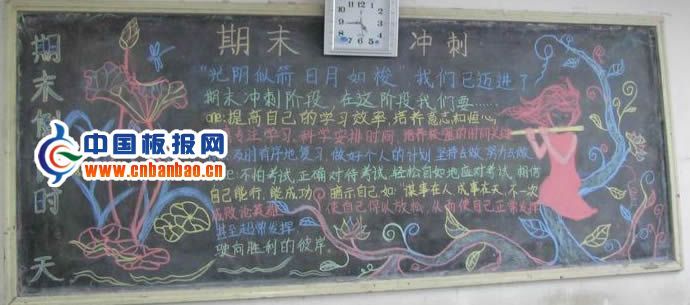 期末 冲刺
期末 时 天
"光阴似箭 日月如梭" 我们已迈进了
期末冲刺阶段,在这阶段我们要……
一:提高自己的学习效率,培养意志和恒心,
专注学习,科学安排时间,培养较强的时间
有序地复习,做好个人的计划
不怕考试,正确对待考试,轻松自如地应对考试,相信
自己能行,能成功 暗示自己如"谋事在人,成事在天,不一次
成败论英雄 使自己保以放松,从而使自己正常发挥
甚至超常发挥
驶向胜利的彼岸.
中国板报网
www.cnbanbao.cn